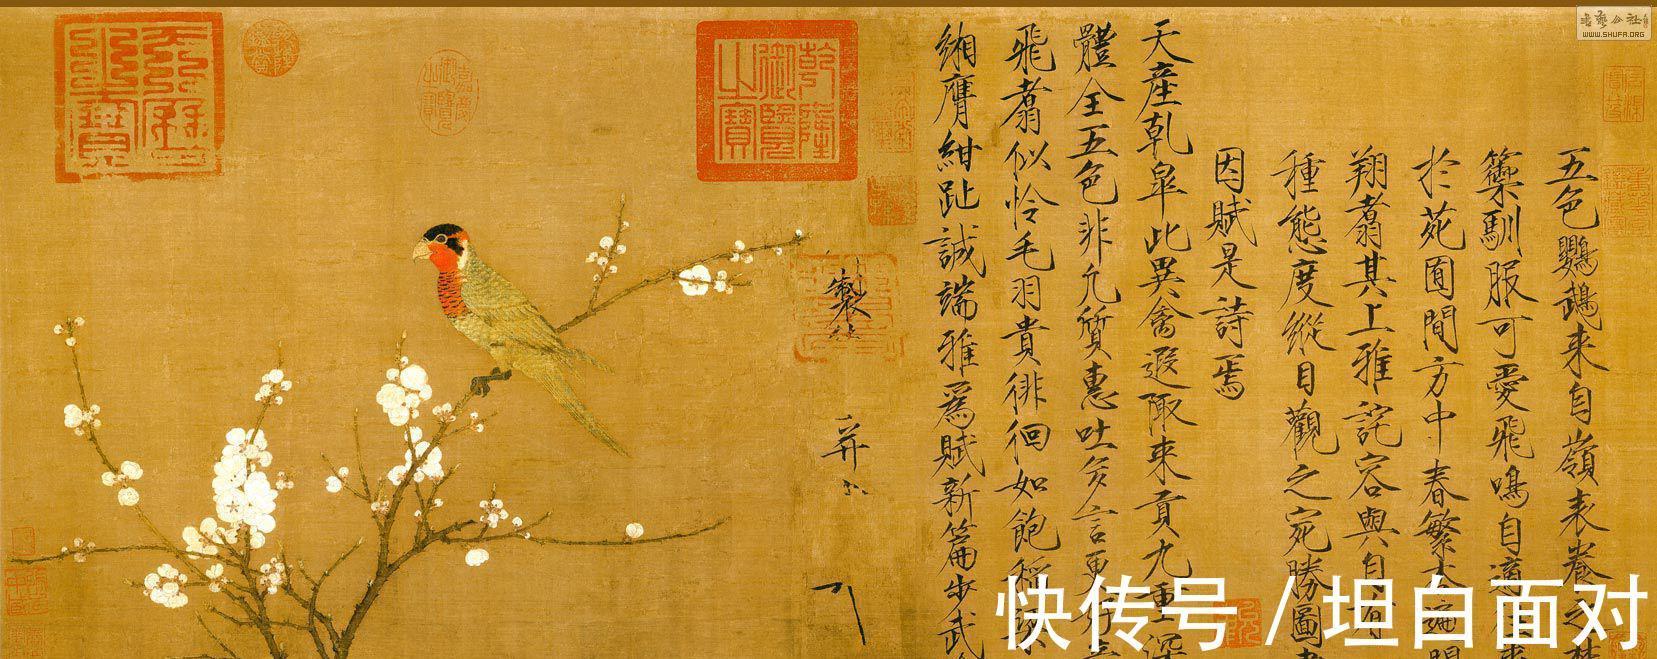 五色鸚鵡来自嶺表養之禁
籞馴服可愛飛鳴自適往来
於苑囿間方中春繁杏遍開
翔翥其上雅詫容與自有
種態度縱目觀之宛勝圖畫
因賦是詩焉
天産乾皐此異禽遐陬来貢九重深
體全五色非凡質惠吐多言更好音
飛翥似怜毛羽貴徘徊如飽稻粱
緗膺紺趾誠端雅爲賦新篇步武吟
製
并
乾隆御覽之寶
嘉慶御覽之寶
WWW.SHUFA.ORG
快传号/坦白面对